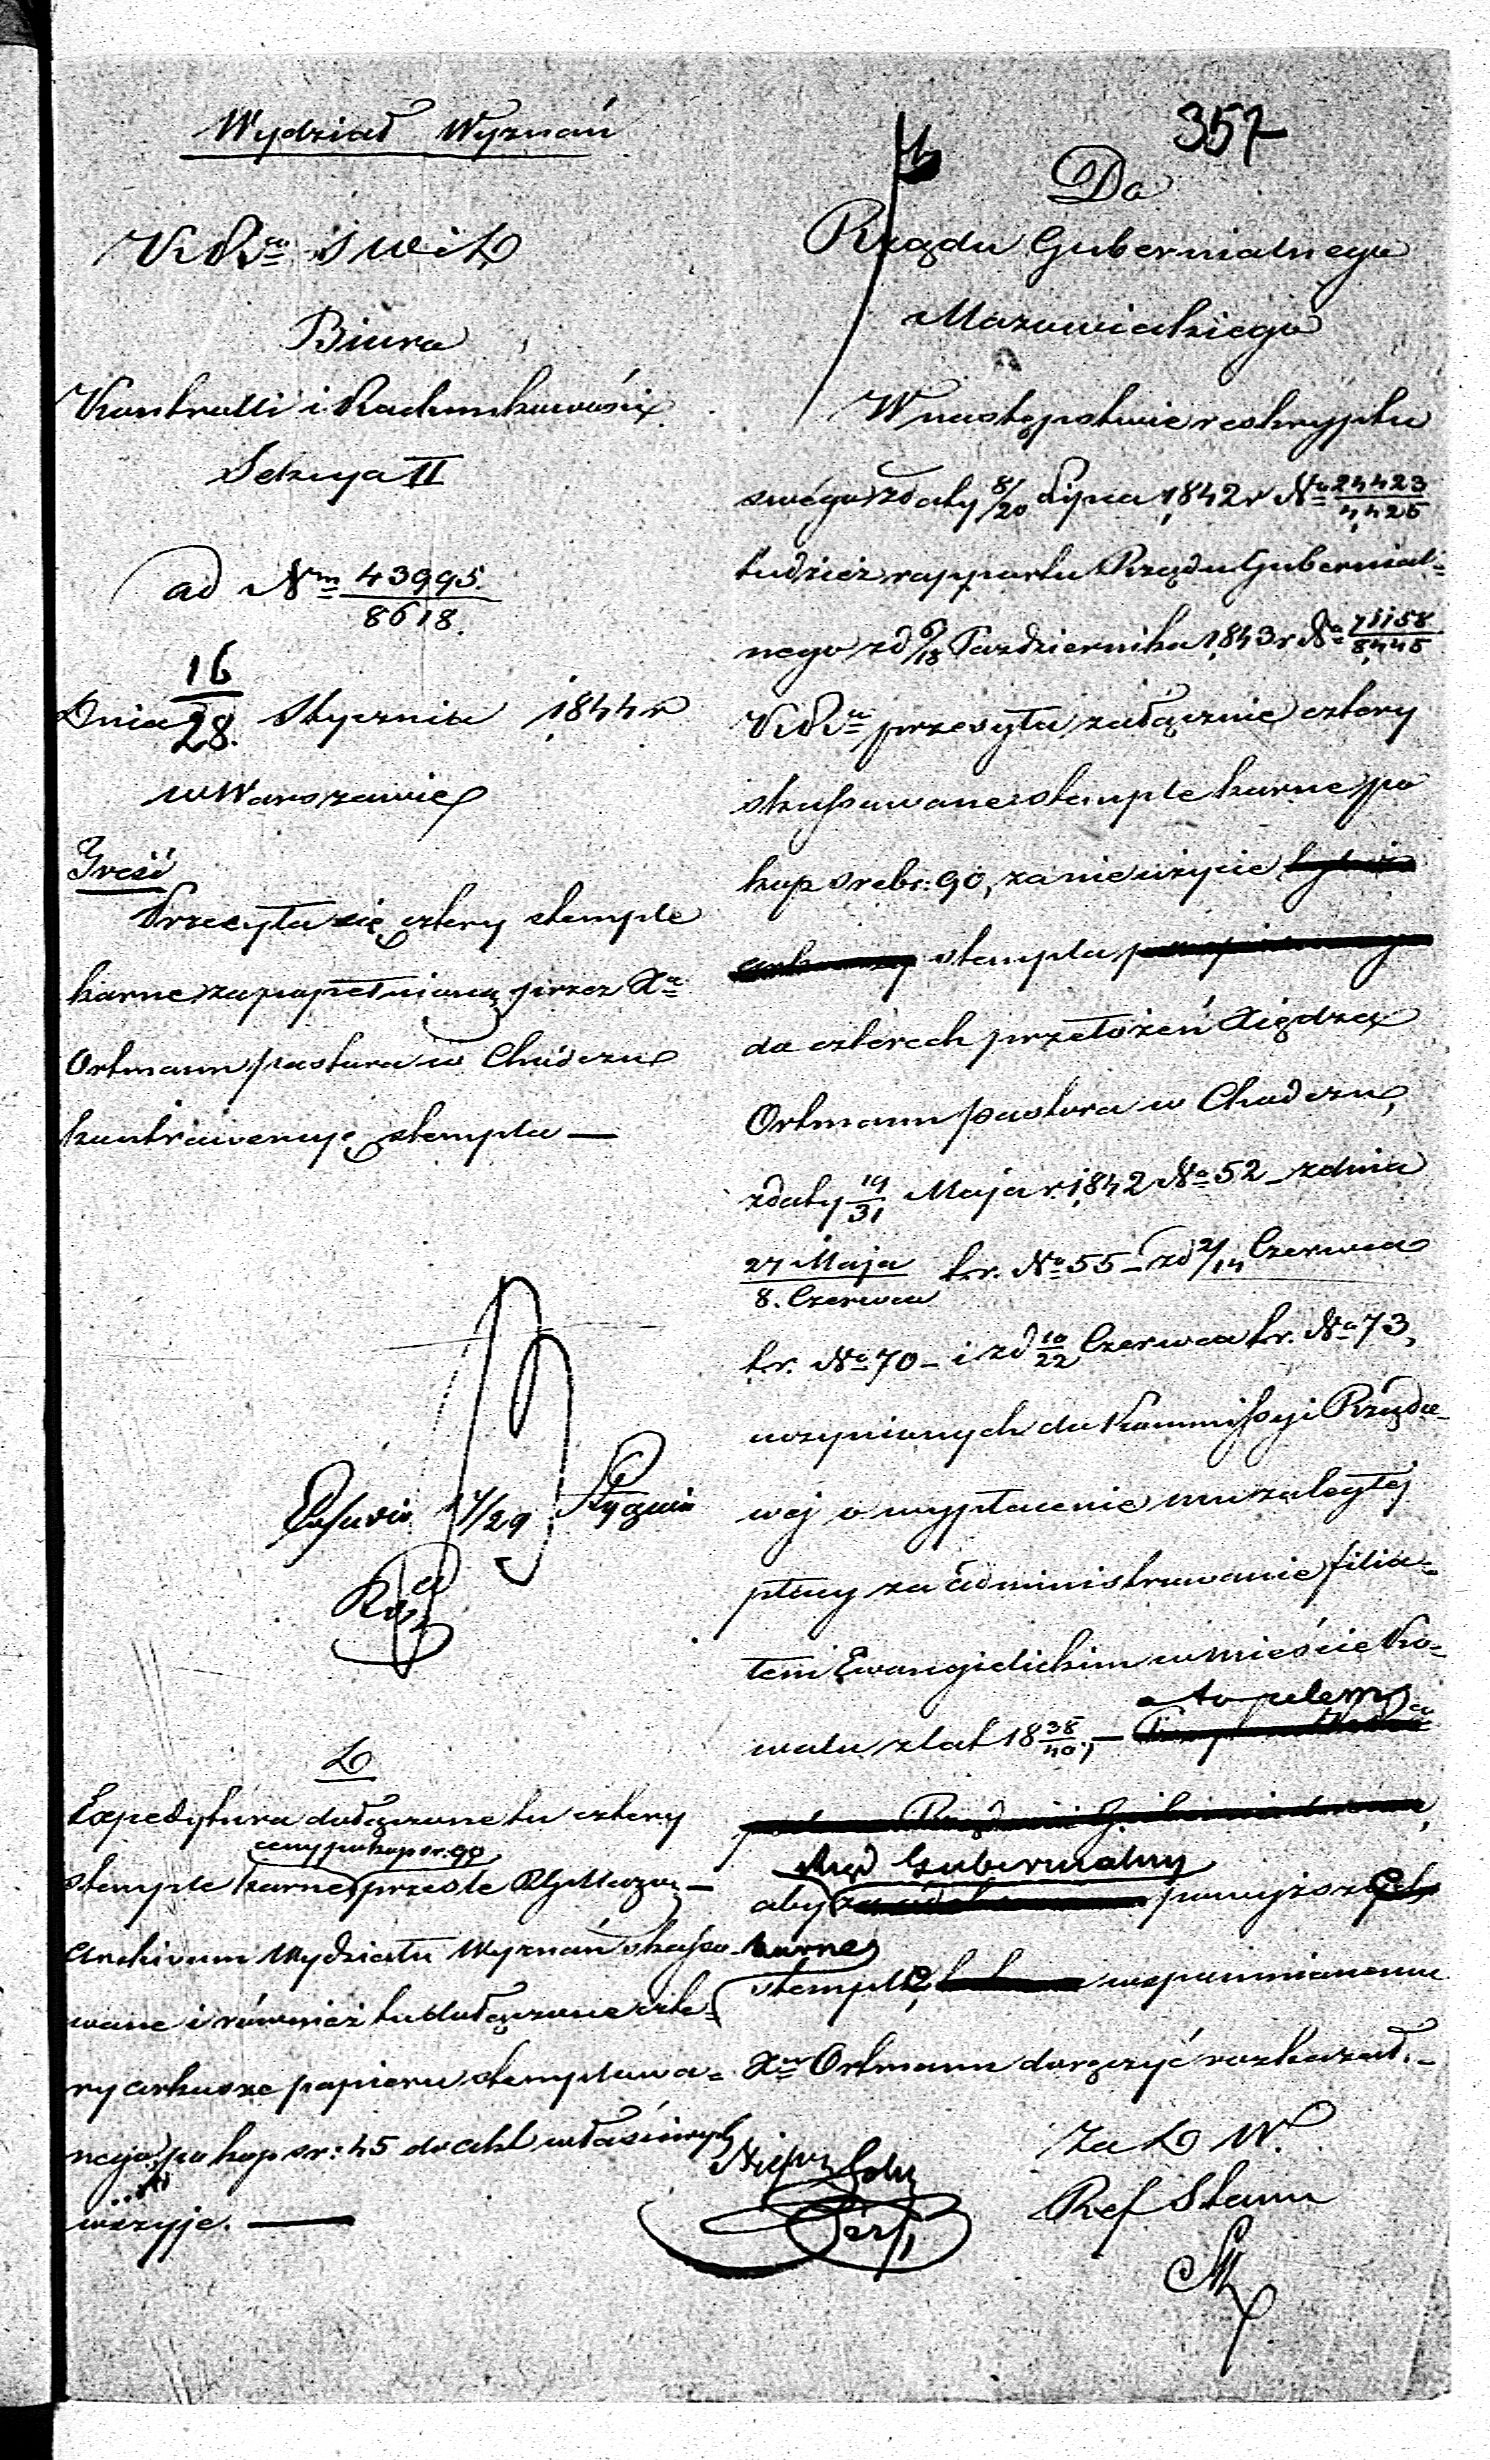 357
Wydział Wyznań
K R S W i D
Biura
Kontrolli i Rachunkowości
Sekcya II
ad Nm 43995/8618.
Dnia 16/28. Stycznia 1844 r
w Warszawie
Treść
Przesyła się cztery stemple
karne za popełnioną przez Xa
Ortmann pastora w Chodczu
kontrawencyę stempla —
17/29 Stycznia
D
Expedytura dołączone tu cztery
ceny po kop sr. 90
stemple karne prześle RGMazow —
Archivum Wydziału Wyznań skasso-
wane i również tu dołączone czte-
ry arkusze papieru stemplowa-
nego po kop sr: 45 do akt właściwych
wszyje. —
Do
Rządu Gubernialnego
Mazowieckiego
W następstwie reskryptu
swego z daty 8/20 Lipca 1842 r No 24423/4,425
tudzież rapportu Rządu Gubernial-
nego z d 6/18 Pazdziernika 1843 r No 71158/8,445
K R przesyła załącznie cztery
skassowane stemple karne po
kop srebr: 90, za nieużycie
stempla
do czterech przełożeń Xiędza
Ortmann pastora w Chodczu,
z daty 19/31 Maja r. 1842 No 52 – z dnia
27 Maja/8. Czerwca t.r. No 55 – z d 2/14 Czerwca
t.r. No 70 – i z d 10/22 Czerwca t.r. No 73,
uczynionych do Kommissyi Rządo-
wej o wypłacenie mu zaległej
płacy za administrowanie filia-
łem Ewangielickim w mieście Ko-
walu z lat 18 38/40., — a to celem
aby Rząd Gubernialny powyższe
karne
stemple, wspomnianemu
Xu Ortmann doręczyć rozkazał. –
Za D W.
Ref Stanu